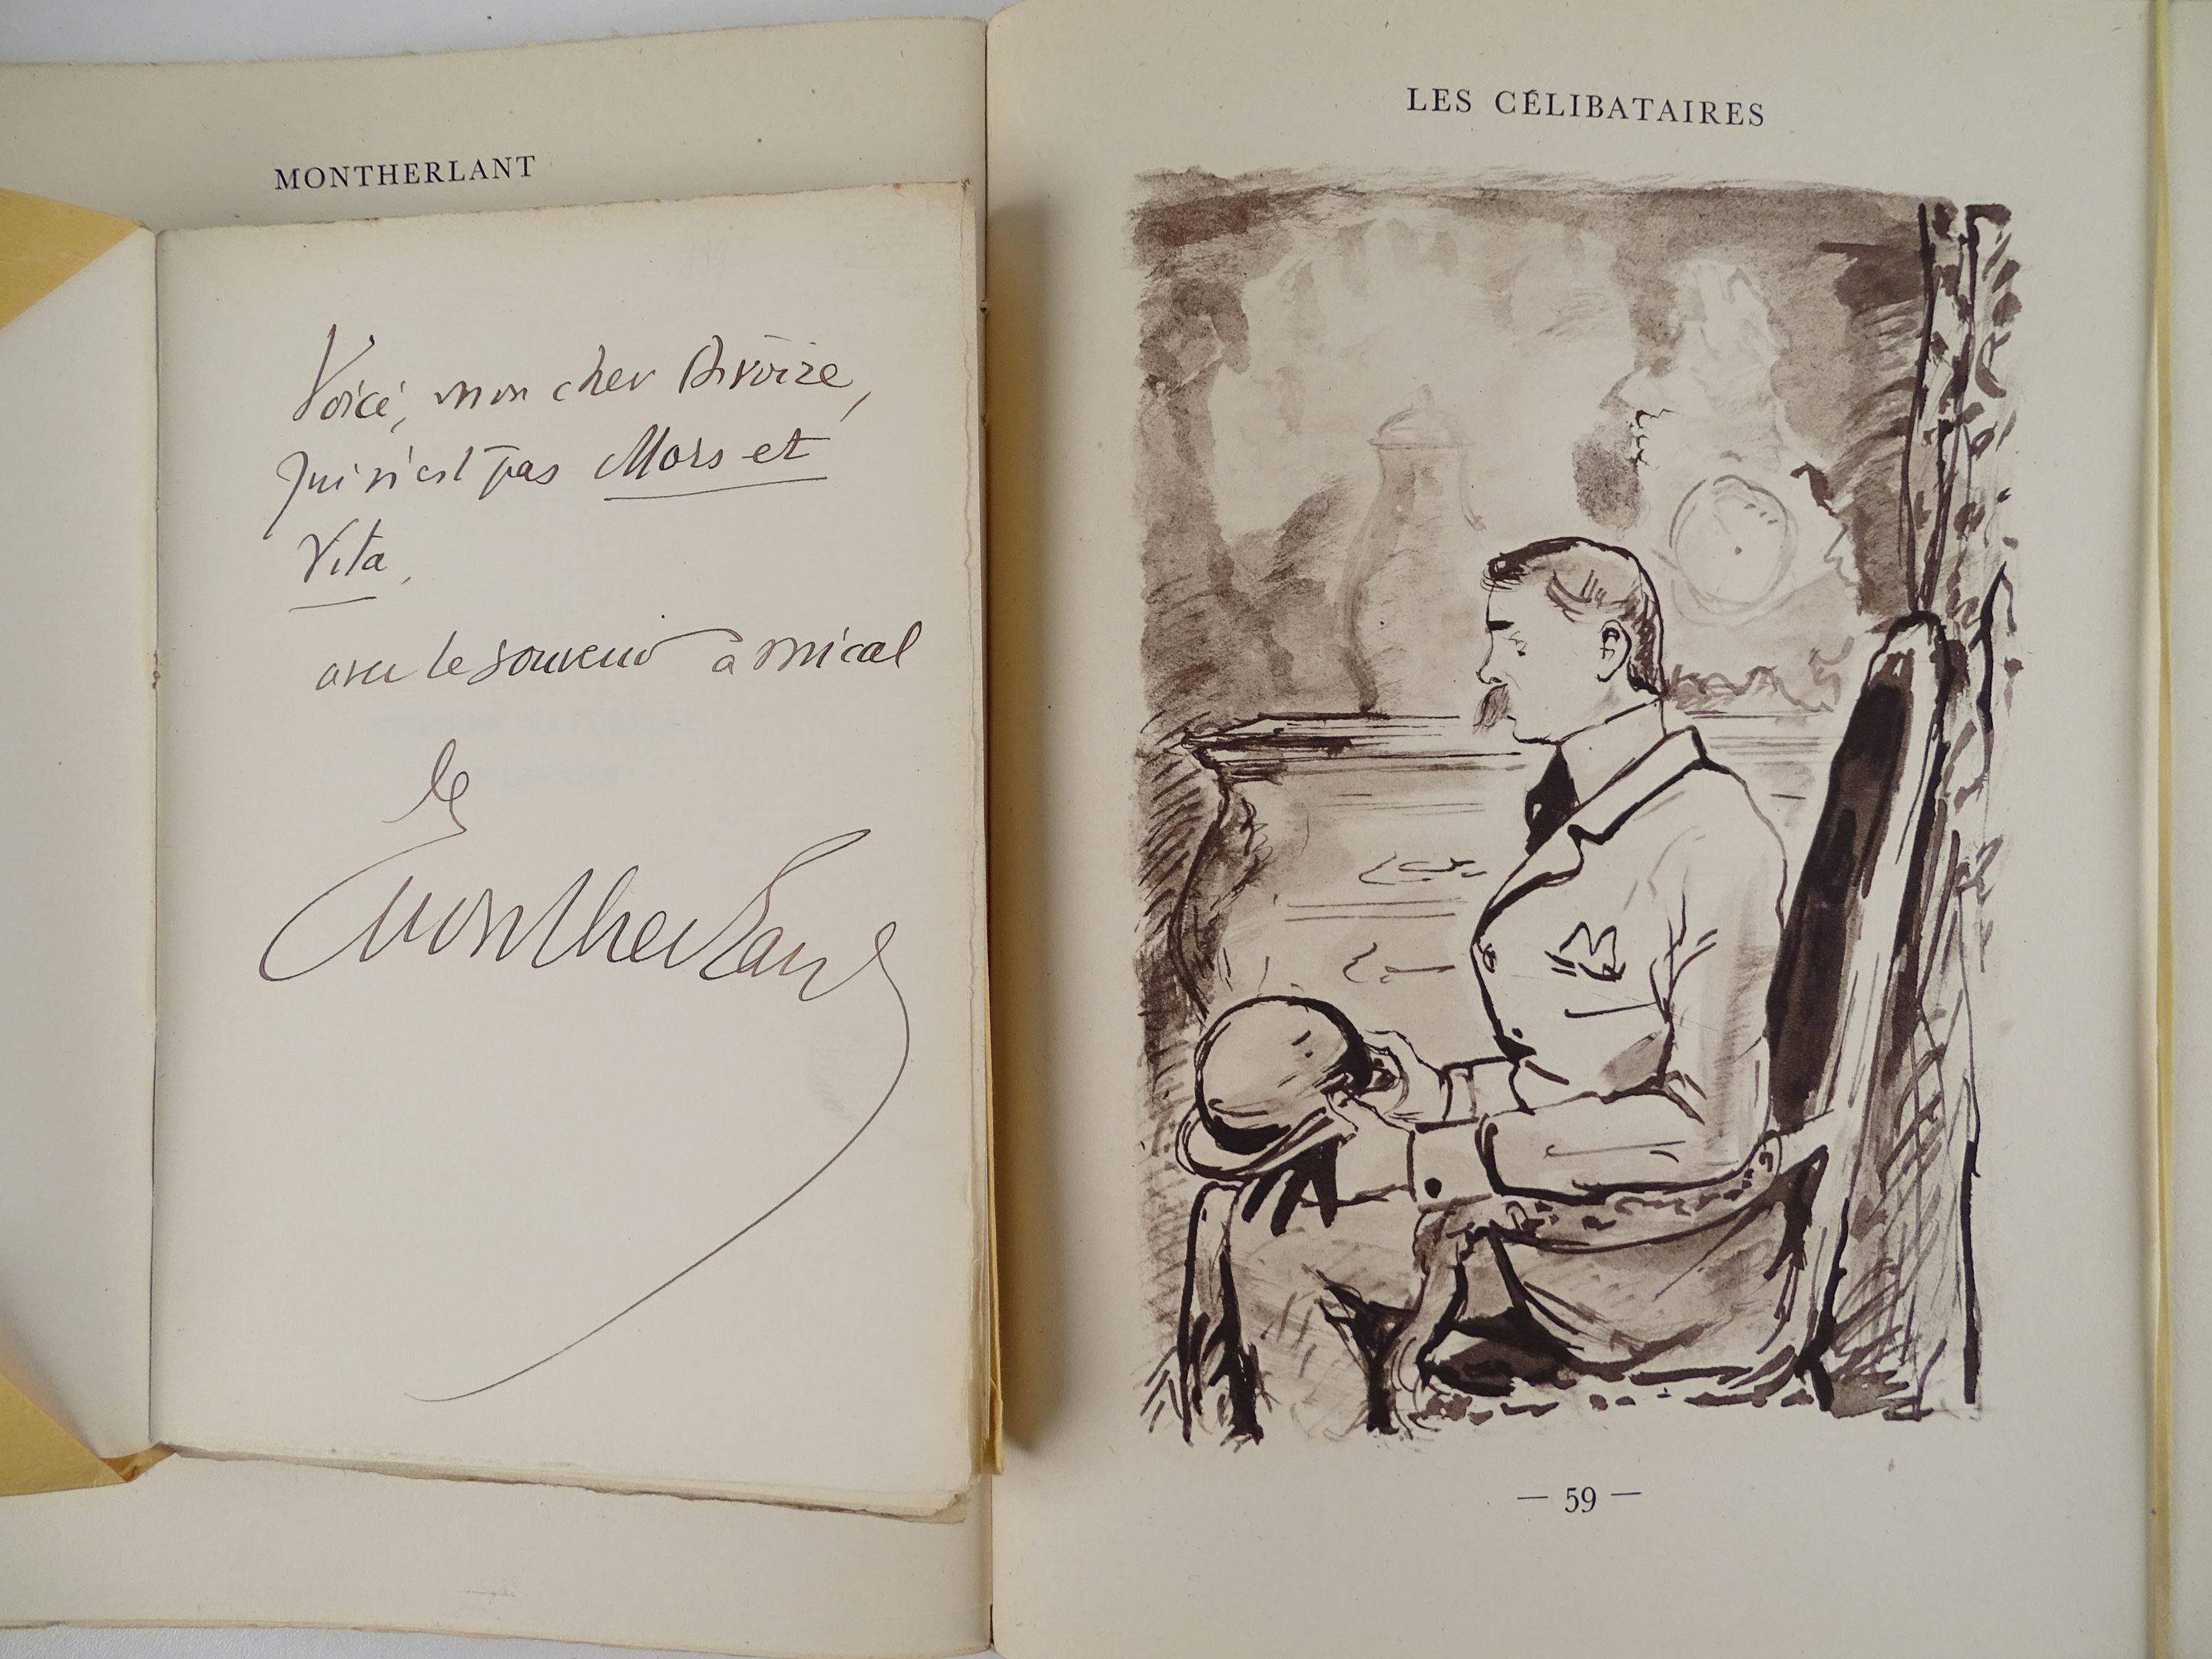 MONTHERLANT
Voici, mon cher Divoire,
qui n'est pas Mors et
Vita,
avec le souvenir amical
de
Montherlant
LES CÉLIBATAIRES
— 59 —